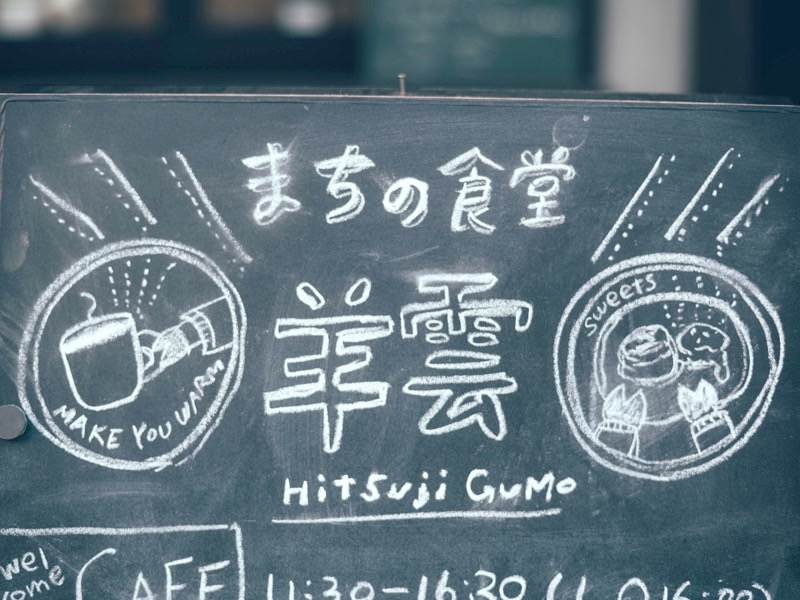 まちの食堂
羊雲
Hitsuji GuMo
MAKE YOU WARM
sweets
wel
come
CAFE
11:30-16:30 (L.O16:00)